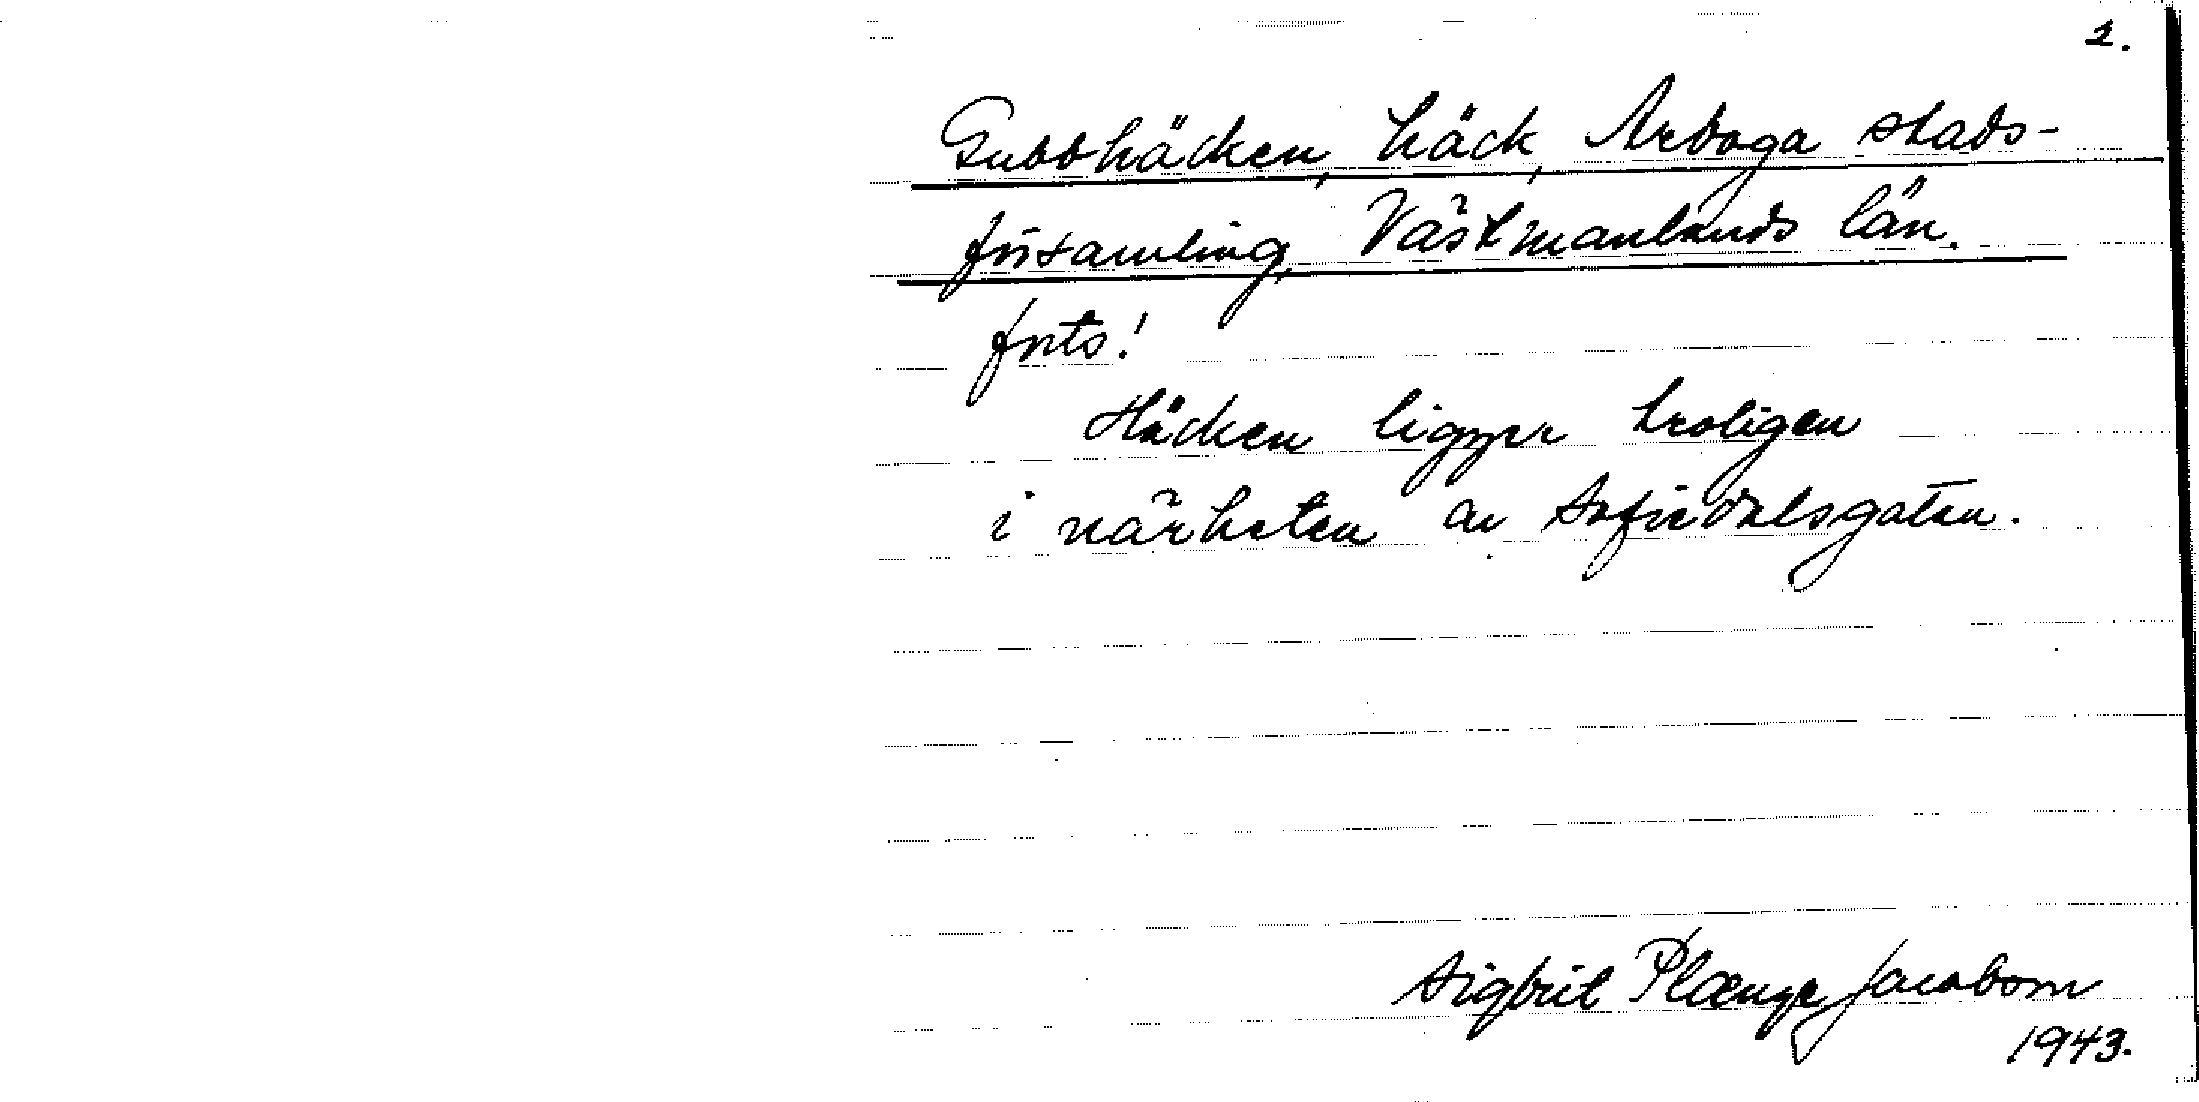 2.
Gubbhäcken, häck, Arboga stads-
församling, Västmanlands län.
forts!
Häcken ligger troligen
i närheten av Sofiedalsgatan.
Sigbrit Plænge Jacobson
1943.